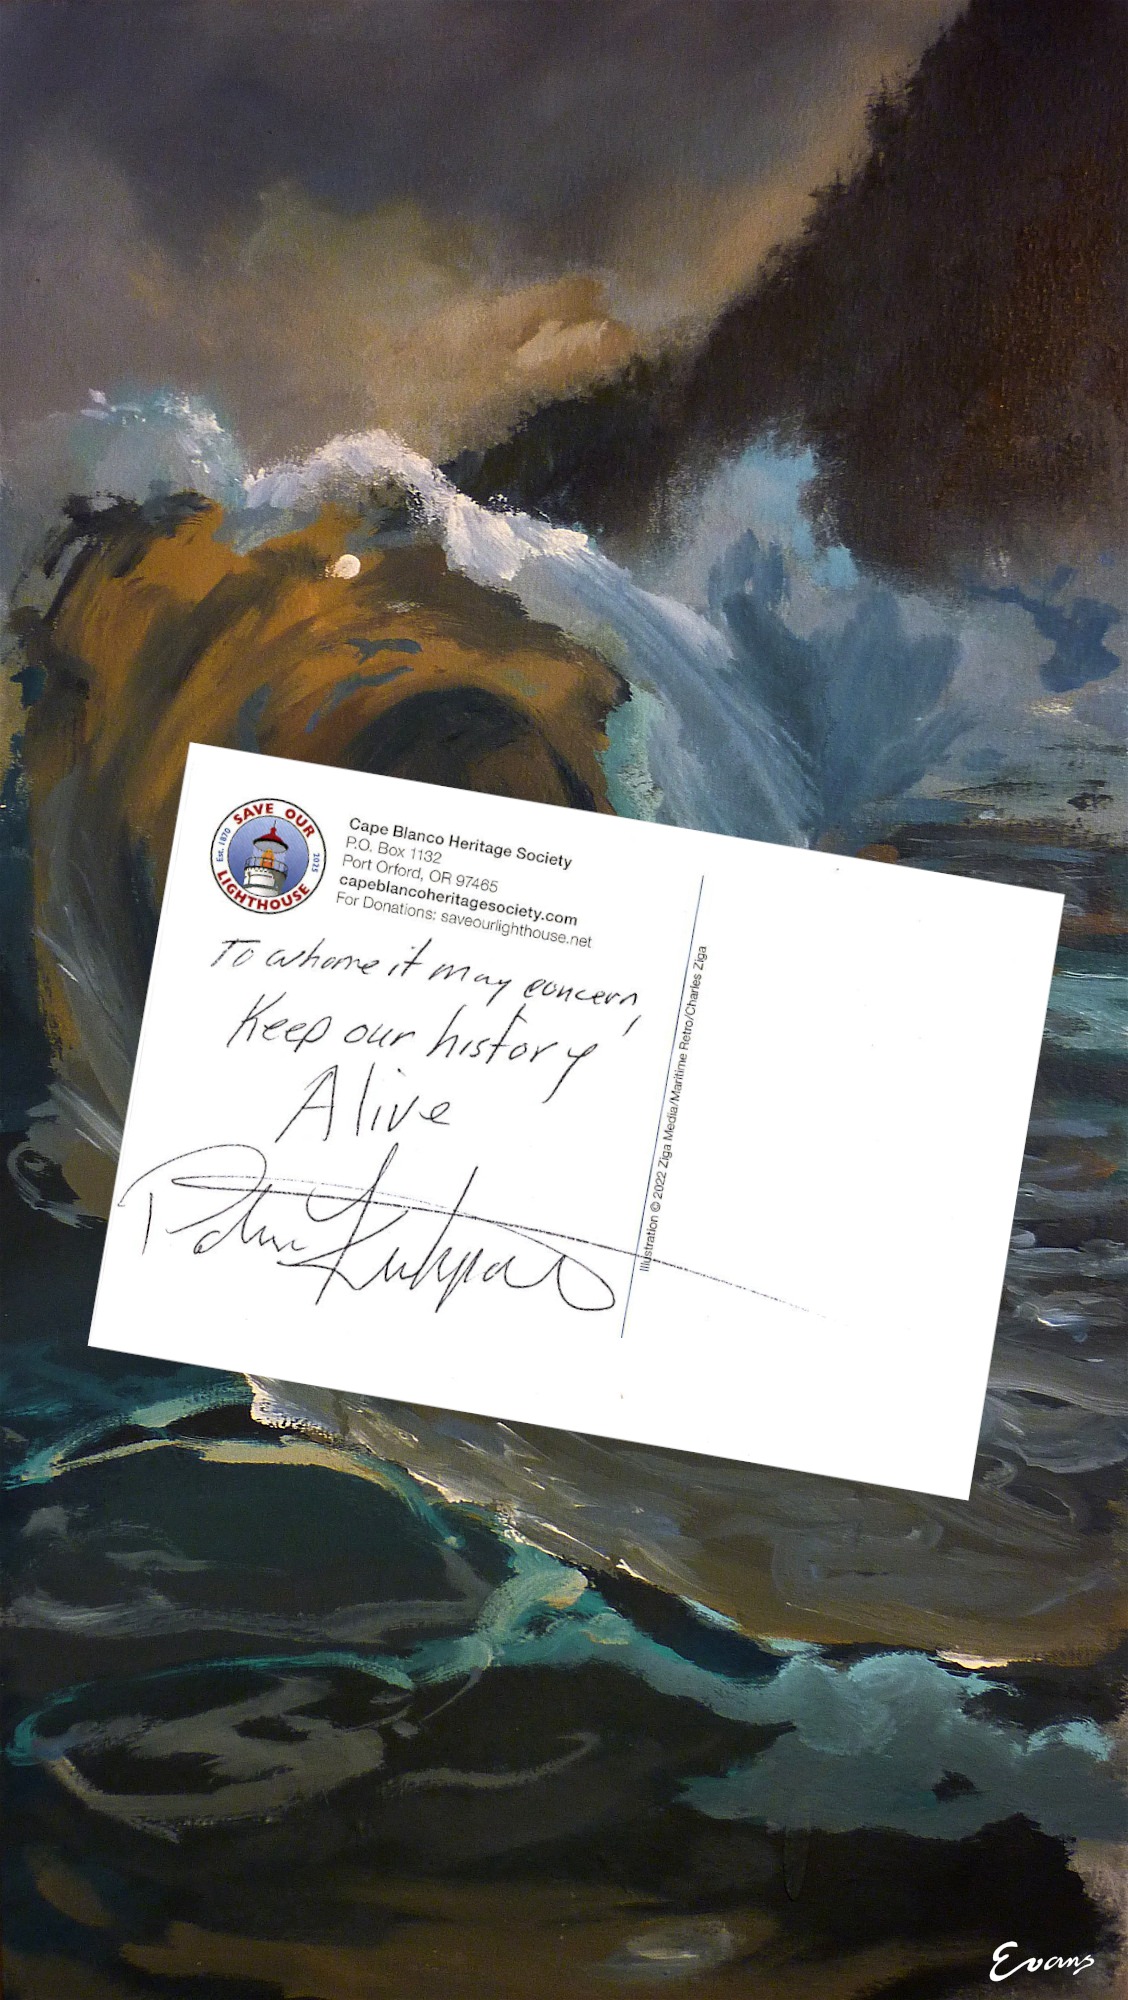 SAVE OUR
Est. 1870
2025
LIGHTHOUSE
Cape Blanco Heritage Society
P.O. Box 1132
Port Orford, OR 97465
capeblancoheritagesociety.com
For Donations: saveourlighthouse.net
To whome it may concern,
Keep our history
Alive
Illustration © 2022 Ziga Media/Maritime Retro/Charles Ziga
Evans